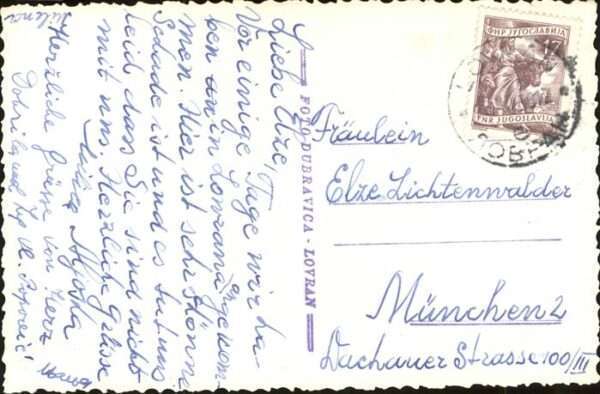 Liebe Elze,
Vor einige Tage wir ha-
ben an in Lovrana angekom-
men. Hier ist sehr schönne
Schade ist und es tut uns
leid das Sie sind nicht
mit uns. Herzliche Grüsse
Herzliche Grüsse von Herz
Popović
FOTO DUBRAVICA - LOVRAN
ФНР ЈУГОСЛАВИЈА
17
FNR JUGOSLAVIJA
Fräulein
Elze Lichtenwalder
München 2
Dachauer Strasse 100/III